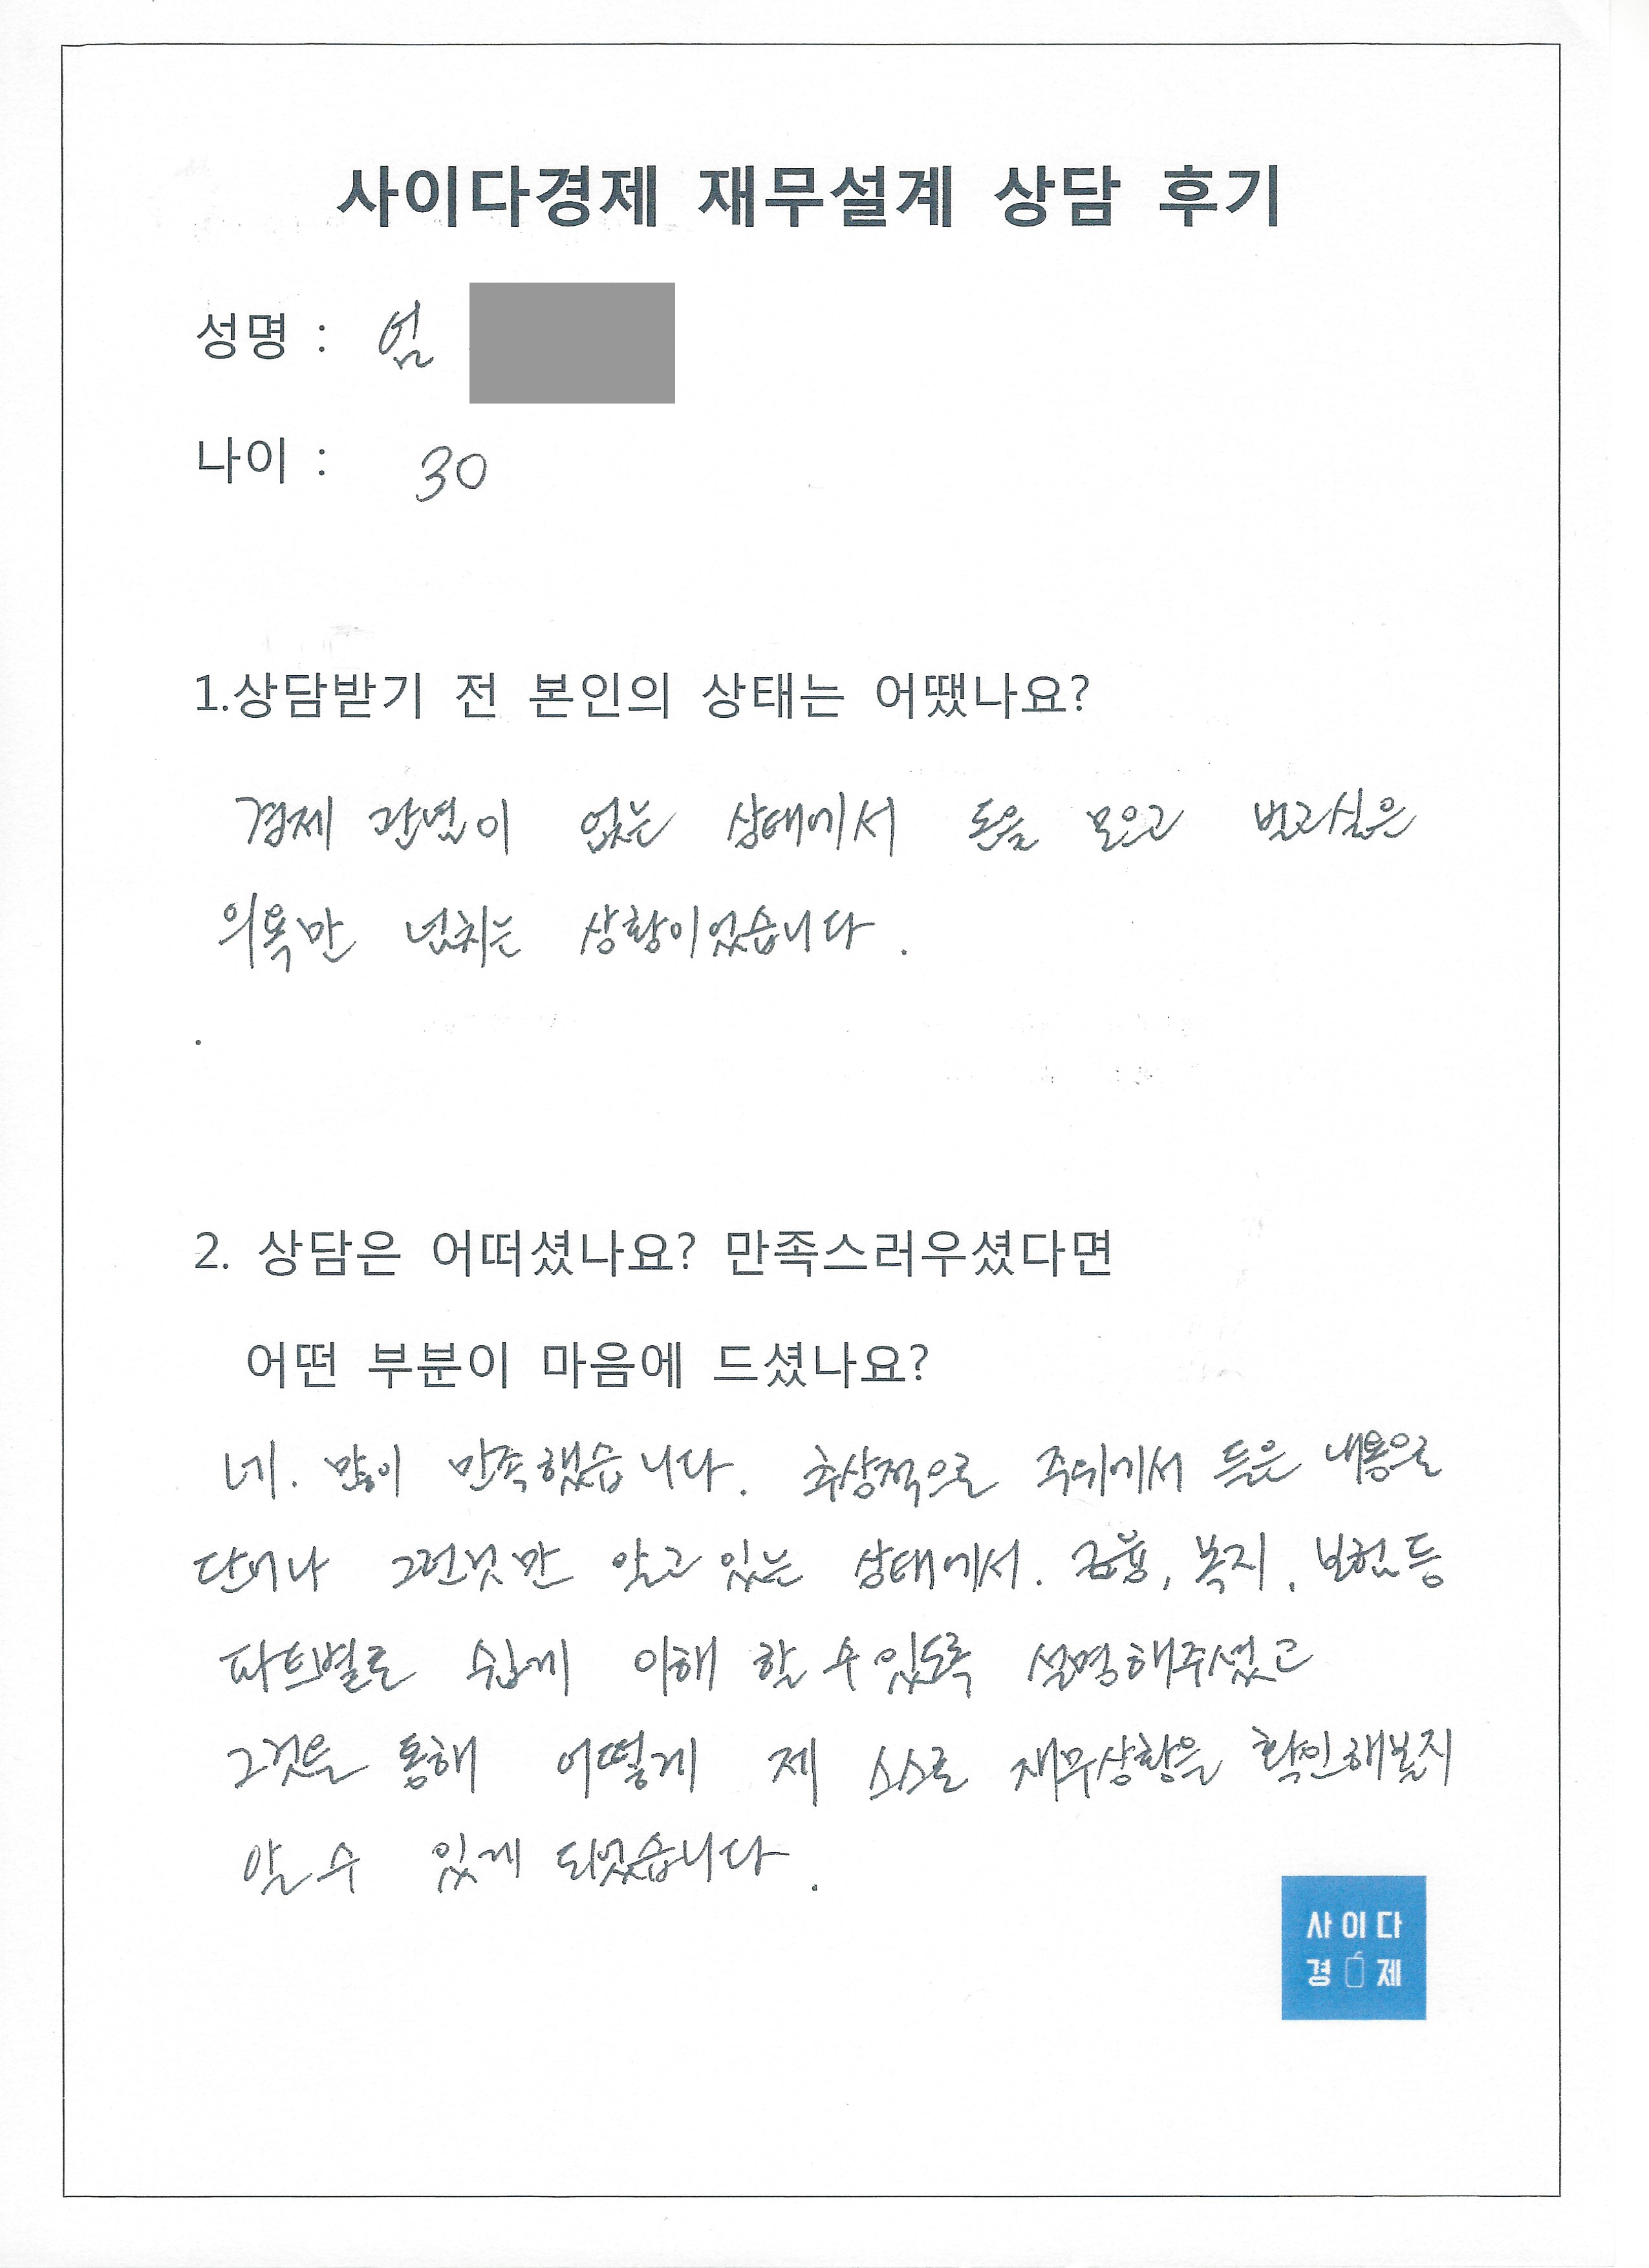 사이다경제 재무설계 상담 후기
성명 : 엄
나이 : 30
1.상담받기 전 본인의 상태는 어땠나요?
경제 관념이 없는 상태에서 돈을 모으고 벌고싶은
의욕만 넘치는 상황이었습니다.
.
2. 상담은 어떠셨나요? 만족스러우셨다면
어떤 부분이 마음에 드셨나요?
네. 많이 만족했습니다. 추상적으로 주위에서 들은 내용으로
단어나 그런것만 알고 있는 상태에서. 금융, 복지, 보험등
파트별로 쉽게 이해 할 수 있도록 설명해주셨고
그것을 통해 어떻게 제 스스로 재무상황을 확인해볼지
알 수 있게 되었습니다.
사이다
경제